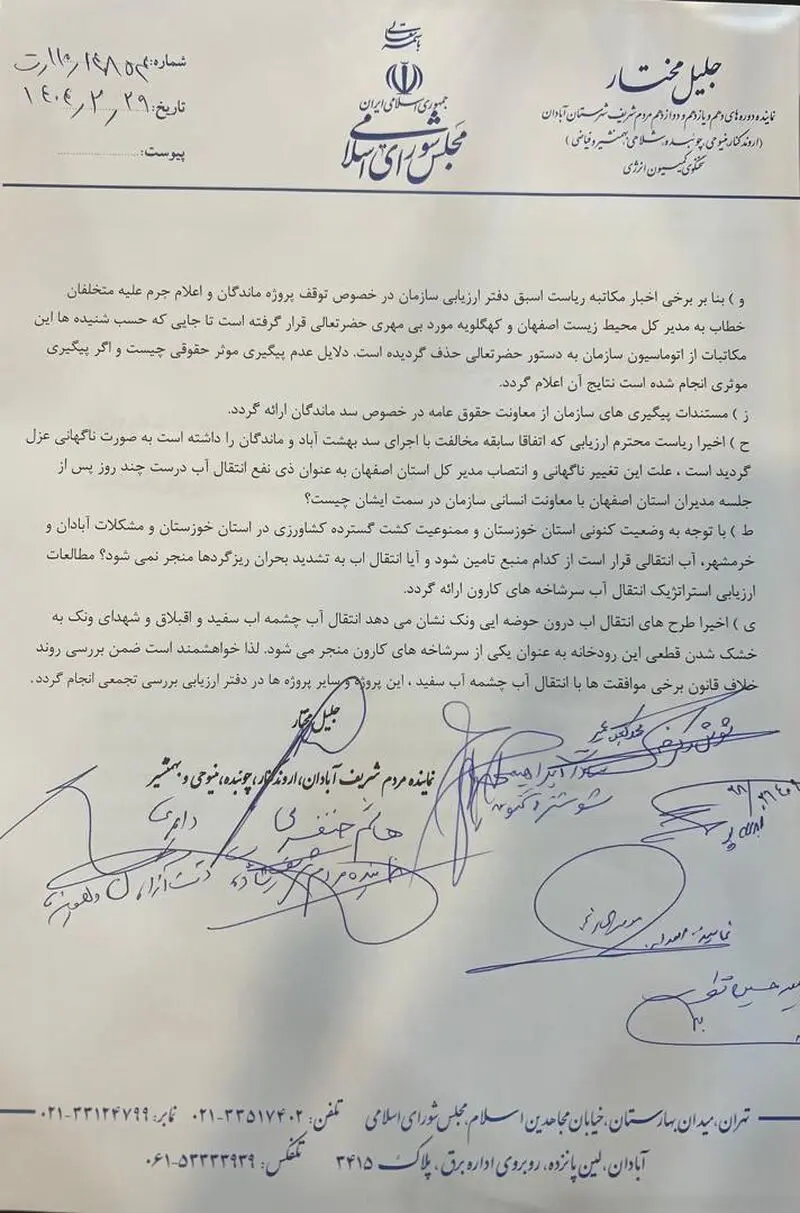 باسمه تعالی
جمهوری اسلامی ایران
مجلس شورای اسلامی
جلیل مختار
نماینده دوره های دهم و یازدهم و دوازدهم مردم شریف شهرستان آبادان
(اروندکنار، منیوحی، چوئبده، شلاهی، بهمنشیر و فیاضی)
سخنگوی کمیسیون انرژی
شماره:
تاریخ: ۱۴۰۴/۲/۲۹
پیوست:
و ) بنا بر برخی اخبار مکاتبه ریاست اسبق دفتر ارزیابی سازمان در خصوص توقف پروژه ماندگان و اعلام جرم علیه متخلفان
خطاب به مدیر کل محیط زیست اصفهان و کهگلویه مورد بی مهری حضرتعالی قرار گرفته است تا جایی که حسب شنیده ها این
مکاتبات از اتوماسیون سازمان به دستور حضرتعالی حذف گردیده است. دلایل عدم پیگیری موثر حقوقی چیست و اگر پیگیری
موثری انجام شده است نتایج آن اعلام گردد.
ز ) مستندات پیگیری های سازمان از معاونت حقوق عامه در خصوص سد ماندگان ارائه گردد.
ح ) اخیرا ریاست محترم ارزیابی که اتفاقا سابقه مخالفت با اجرای سد بهشت آباد و ماندگان را داشته است به صورت ناگهانی عزل
گردید است ، علت این تغییر ناگهانی و انتصاب مدیر کل استان اصفهان به عنوان ذی نفع انتقال آب درست چند روز پس از
جلسه مدیران استان اصفهان با معاونت انسانی سازمان در سمت ایشان چیست؟
ط ) با توجه به وضعیت کنونی استان خوزستان و ممنوعیت کشت گسترده کشاورزی در استان خوزستان و مشکلات آبادان و
خرمشهر، آب انتقالی قرار است از کدام منبع تامین شود و آیا انتقال اب به تشدید بحران ریزگردها منجر نمی شود؟ مطالعات
ارزیابی استراتژیک انتقال آب سرشاخه های کارون ارائه گردد.
ی ) اخیرا طرح های انتقال اب درون حوضه ایی ونک نشان می دهد انتقال آب چشمه اب سفید و اقبلاق و شهدای ونک به
خشک شدن قطعی این رودخانه به عنوان یکی از سرشاخه های کارون منجر می شود. لذا خواهشمند است ضمن بررسی روند
خلاف قانون برخی موافقت ها با انتقال آب چشمه آب سفید ، این پروژه و سایر پروژه ها در دفتر ارزیابی بررسی تجمعی انجام گردد.
جلیل مختار
نماینده مردم شریف آبادان، اروندکنار، چوئبده، منیوحی و بهمنشیر
هاشم خنفری
نماینده مردم شریف شادگان
شوشتر و گتوند
تهران، میدان بهارستان، خیابان مجاهدین اسلام، مجلس شورای اسلامی تلفن: ۳۳۵۱۷۴۰۲-۰۲۱ نمابر: ۳۳۱۲۴۷۹۹-۰۲۱
آبادان، لین پانزده، روبروی اداره برق، پلاک ۳۴۱۵ تلفکس: ۵۳۳۳۳۹۳۹-۰۶۱